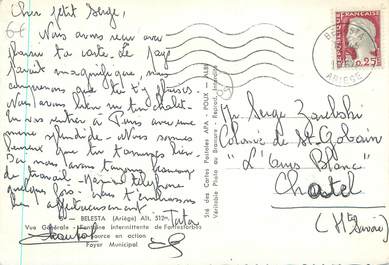 Cher petit Serge,
6€
Nous avons reçu avec
ta carte. Le pays
paraît magnifique, nous
comprenons que tu t'y plaises
Nous avons bien un chalet
rentrés à Paris avec une
splendide. Nous sommes
que tu
Ici nous avons toujours beaucoup
de travail. téléphone
quelque fois. Nous t'embrassons
bien affectueusement
Tata
BELESTA (Ariège) Alt. 512m.
Vue Générale - Fontaine intermittente de Fontestorbes
source en action
Foyer Municipal
Sté des Cartes Postales APA - POUX - ALBI
Véritable Photo au Bromure - Reprod. Interdite
BELESTA
ARIEGE
REPUBLIQUE FRANÇAISE
0,25
Mr Serge
Colonie de St Gobain
"L'Ours Blanc"
Chatel
(Hte Savoie)